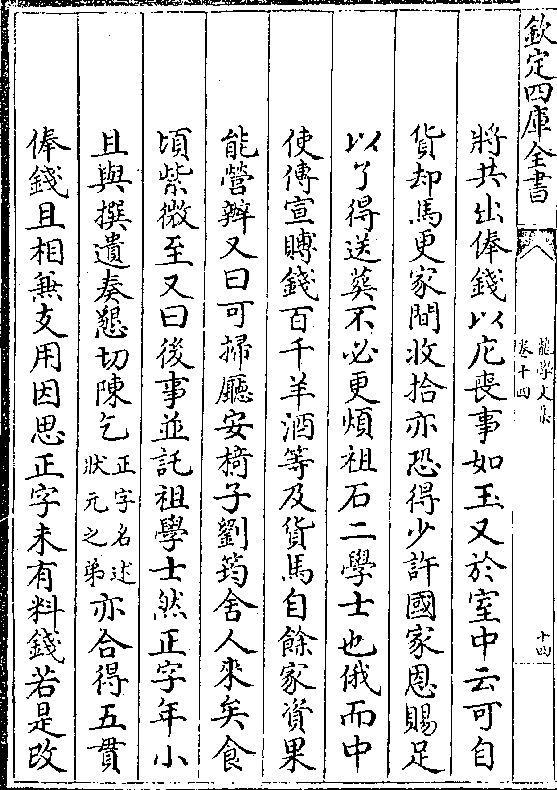 欽定四庫全書
龍學文集
卷十四
十四
將共出俸錢以庀喪事如玉又於室中云可自
貨却馬更家間收拾亦恐得少許國家恩賜足
以了得送葬不必更煩祖石二學士也俄而中
使傳宣賻錢百千羊酒等及貨馬自餘家資果
能營辦又曰可掃廳安椅子劉筠舍人來矣食
頃紫微至又曰後事並託祖學士然正字年小
且與撰遺奏懇切陳乞正字名述狀元之弟亦合得五貫
俸錢且相兼支用因思正字未有料錢若是改